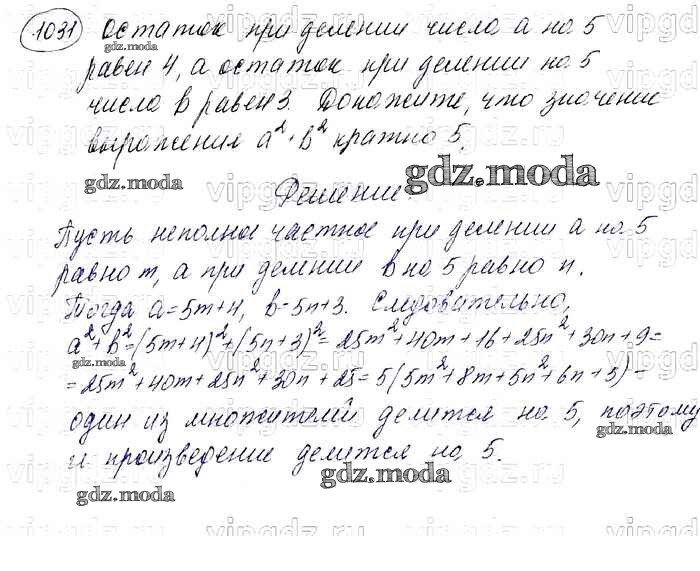 1031 Остаток при делении числа а на 5
равен 4, а остаток при делении на 5
числа в равен 3. Докажите, что значение
выражения a²+b² кратно 5.
Решение.
Пусть неполное частное при делении а на 5
равно m, а при делении в на 5 равно n.
Тогда a=5m+4, b=5n+3. Следовательно,
a²+b²=(5m+4)²+(5n+3)²=25m²+40m+16+25n²+30n+9=
=25m²+40m+25n²+30n+25=5(5m²+8m+5n²+6n+5) -
один из множителей делится на 5, поэтому
и произведение делится на 5.
gdz.moda
gdz.moda
gdz.moda
gdz.moda
gdz.moda
gdz.moda
gdz.moda
vipgdz.ru